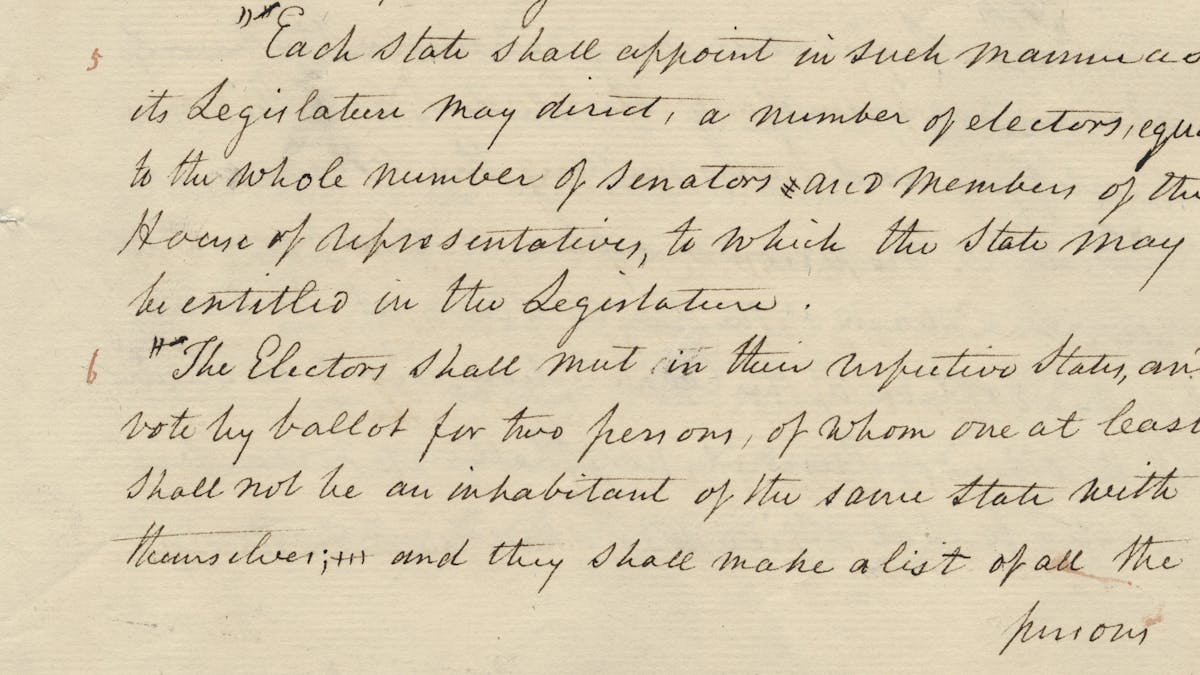 5 "Each State shall appoint in such manner as
its Legislature may direct, a number of electors, equa
to the whole number of Senators and Members of the
House of representatives, to which the State may
be entitled in the Legislature.
6 "The Electors shall meet in their respective States, an
vote by ballot for two persons, of whom one at least
shall not be an inhabitant of the same State with
themselves; +++ and they shall make a list of all the
persons